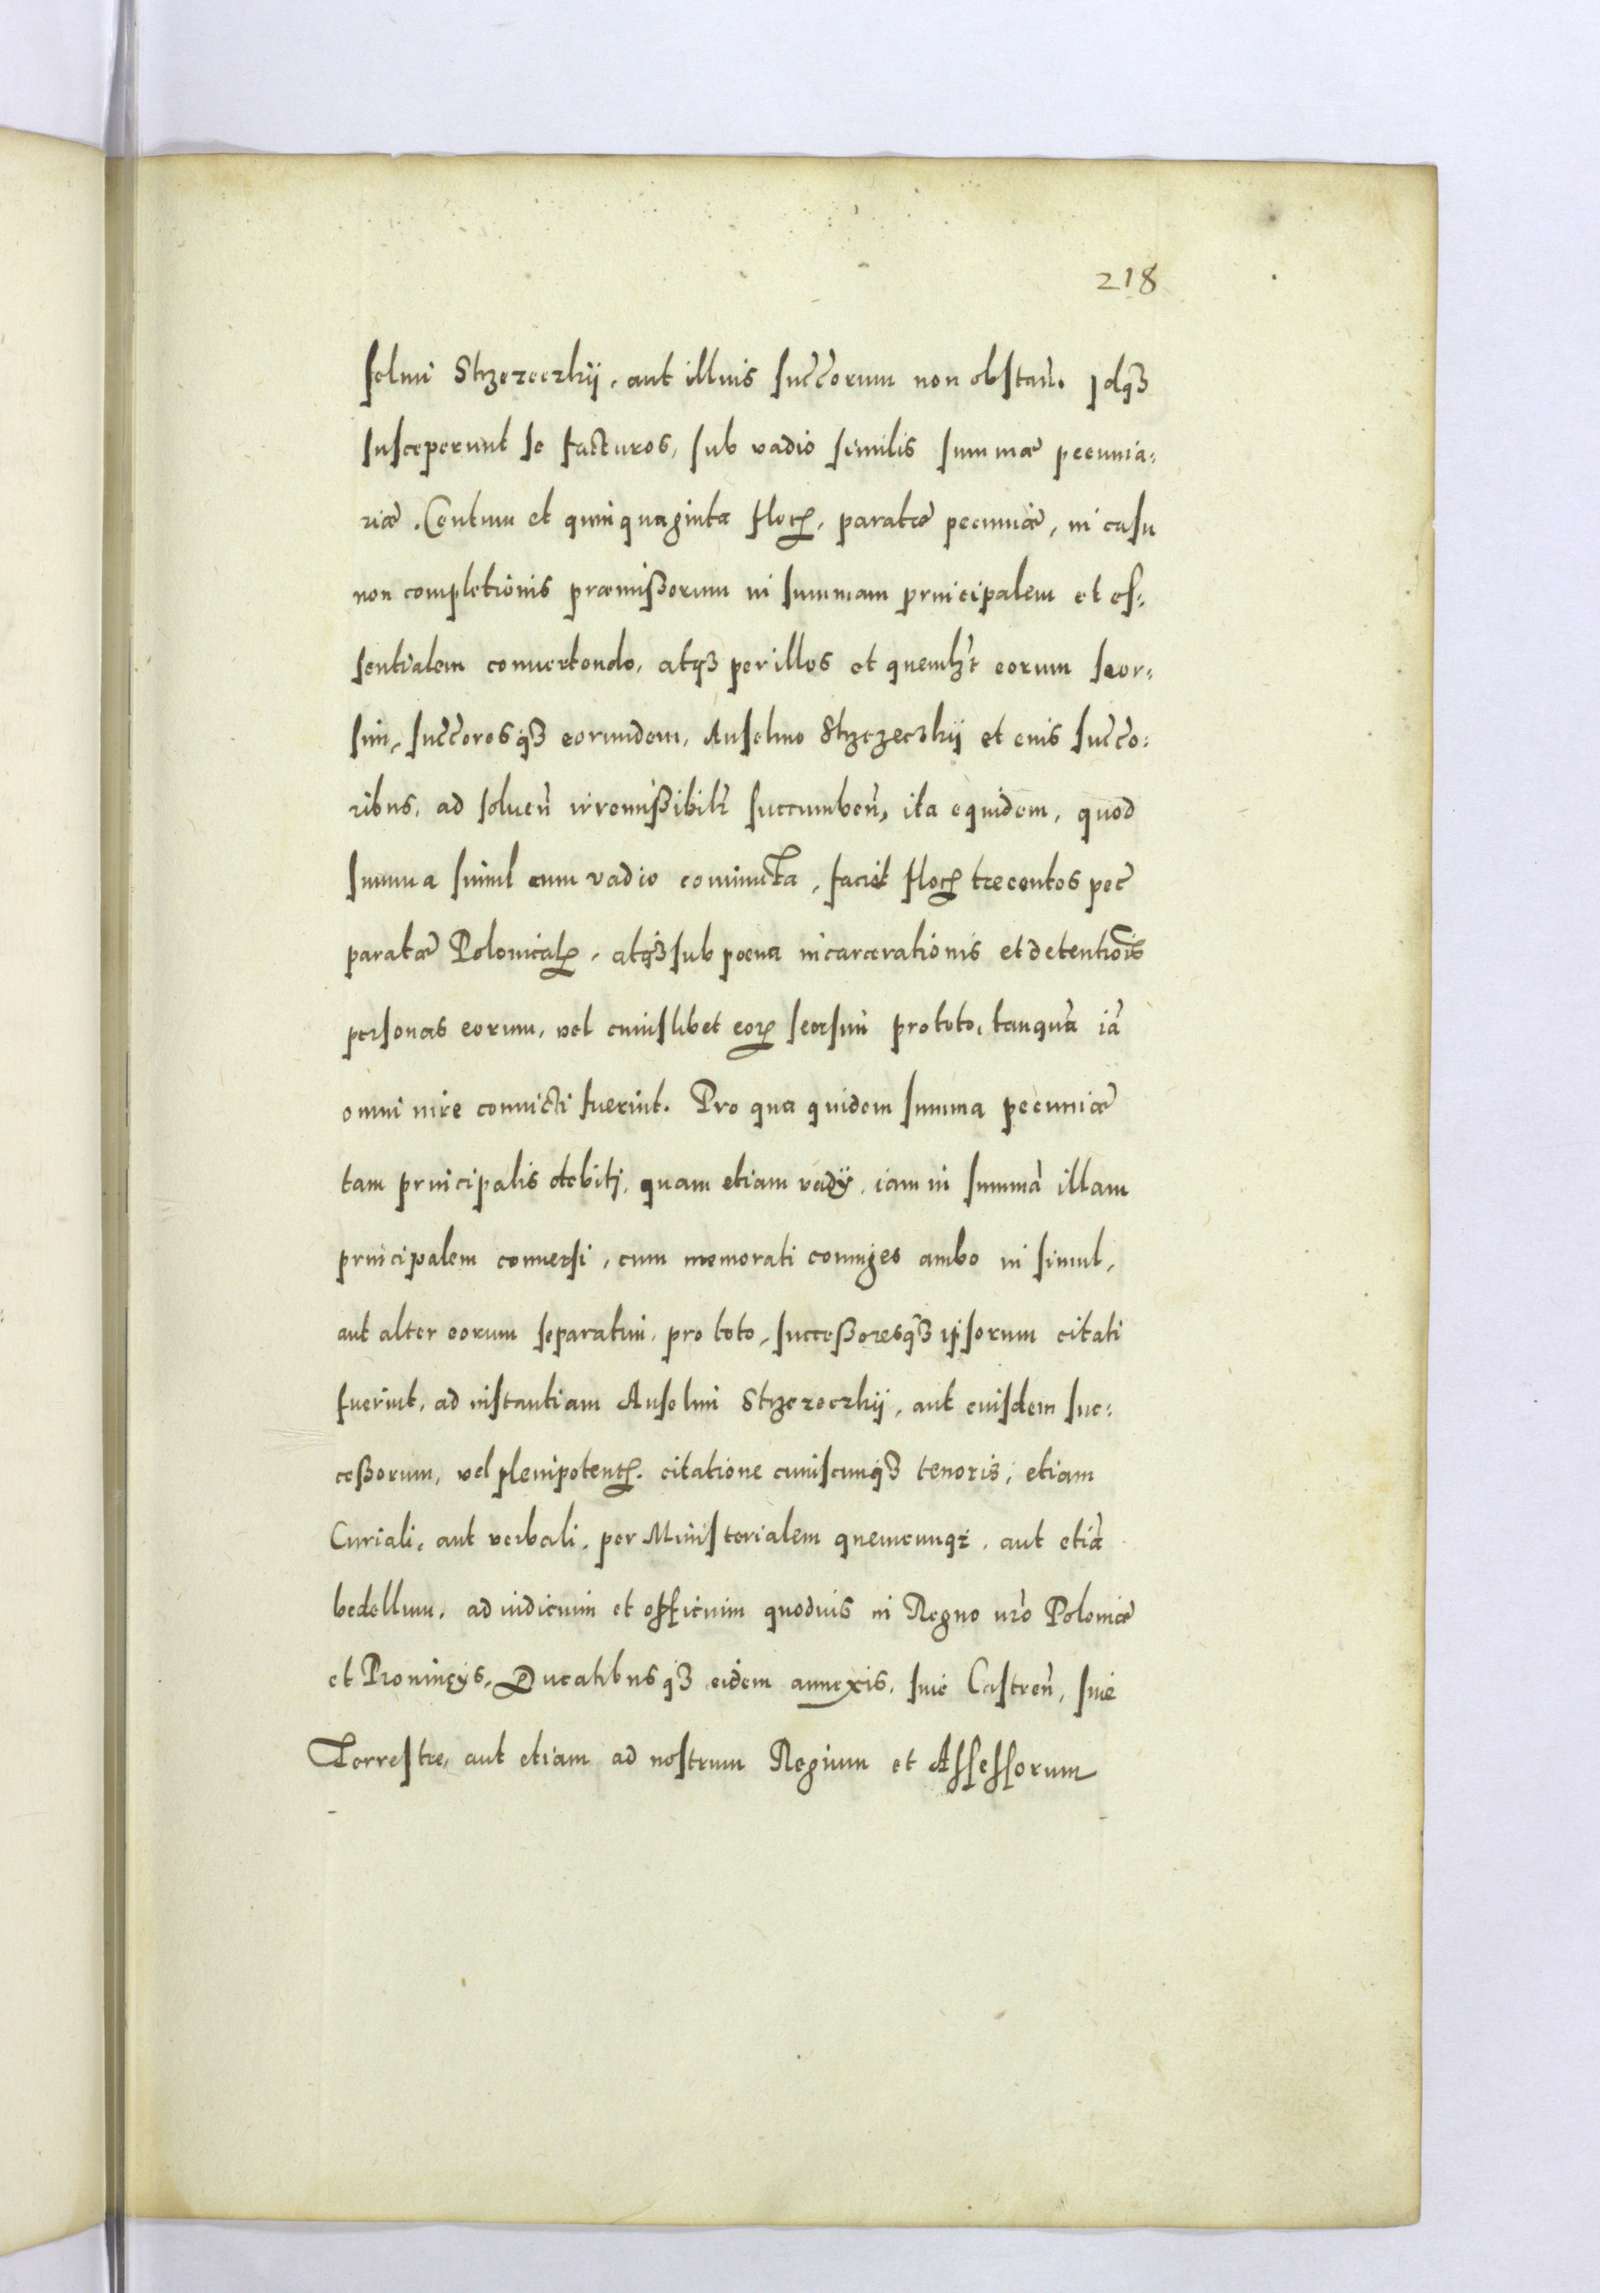 218
selmi Strzezeczkij, aut illius succorum non obstan̄. Idq3
susceperunt se facturos, sub vadio similis summæ pecunia:
riæ. Centum et quinquaginta floꝝ, paratæ pecuniæ, in casu
non completionis præmißorum in summam principalem et es:
sentialem conuertendo, atq3 per illos et quemlib3t eorum seor:
sim, succoresq3 eorundem, Anselmo Strzezeczkij et eius succo:
ribus, ad soluen̄ irremißibilr̄ succumben̄, ita equidem, quod
summa simul cum vadio coniuncta, faciet floꝝ trecentos pec̄
paratæ Polonicaꝝ, atq3 sub poena incarcerationis et detentiōis
personas eorum, vel cuiuslibet eoꝝ seorsim pro toto, tanquā iā
omni iure conuicti fuerint. Pro qua quidem summa pecuniæ
tam principalis debiti, quam etiam vadÿ, iam in summā illam
principalem conuersi, cum memorati coniuges ambo in simul,
aut alter eorum separatim, pro toto, succeßoresq3 ipsorum citati
fuerint, ad instantiam Anselmi Strzezeczkij, aut eiusdem suc:
ceßorum, vel plenipotenꝝ. citatione cuiuscunq3 tenoris, etiam
Curiali, aut verbali, per Ministerialem quemcunq3, aut etiā
bedellum, ad iudicium et officium quoduis in Regno nr̄o Poloniæ
et Prouincÿs, Ducatibusq3 eidem annexis, siue Castren̄, siue
Terrestre, aut etiam ad nostrum Regium et Assessorum